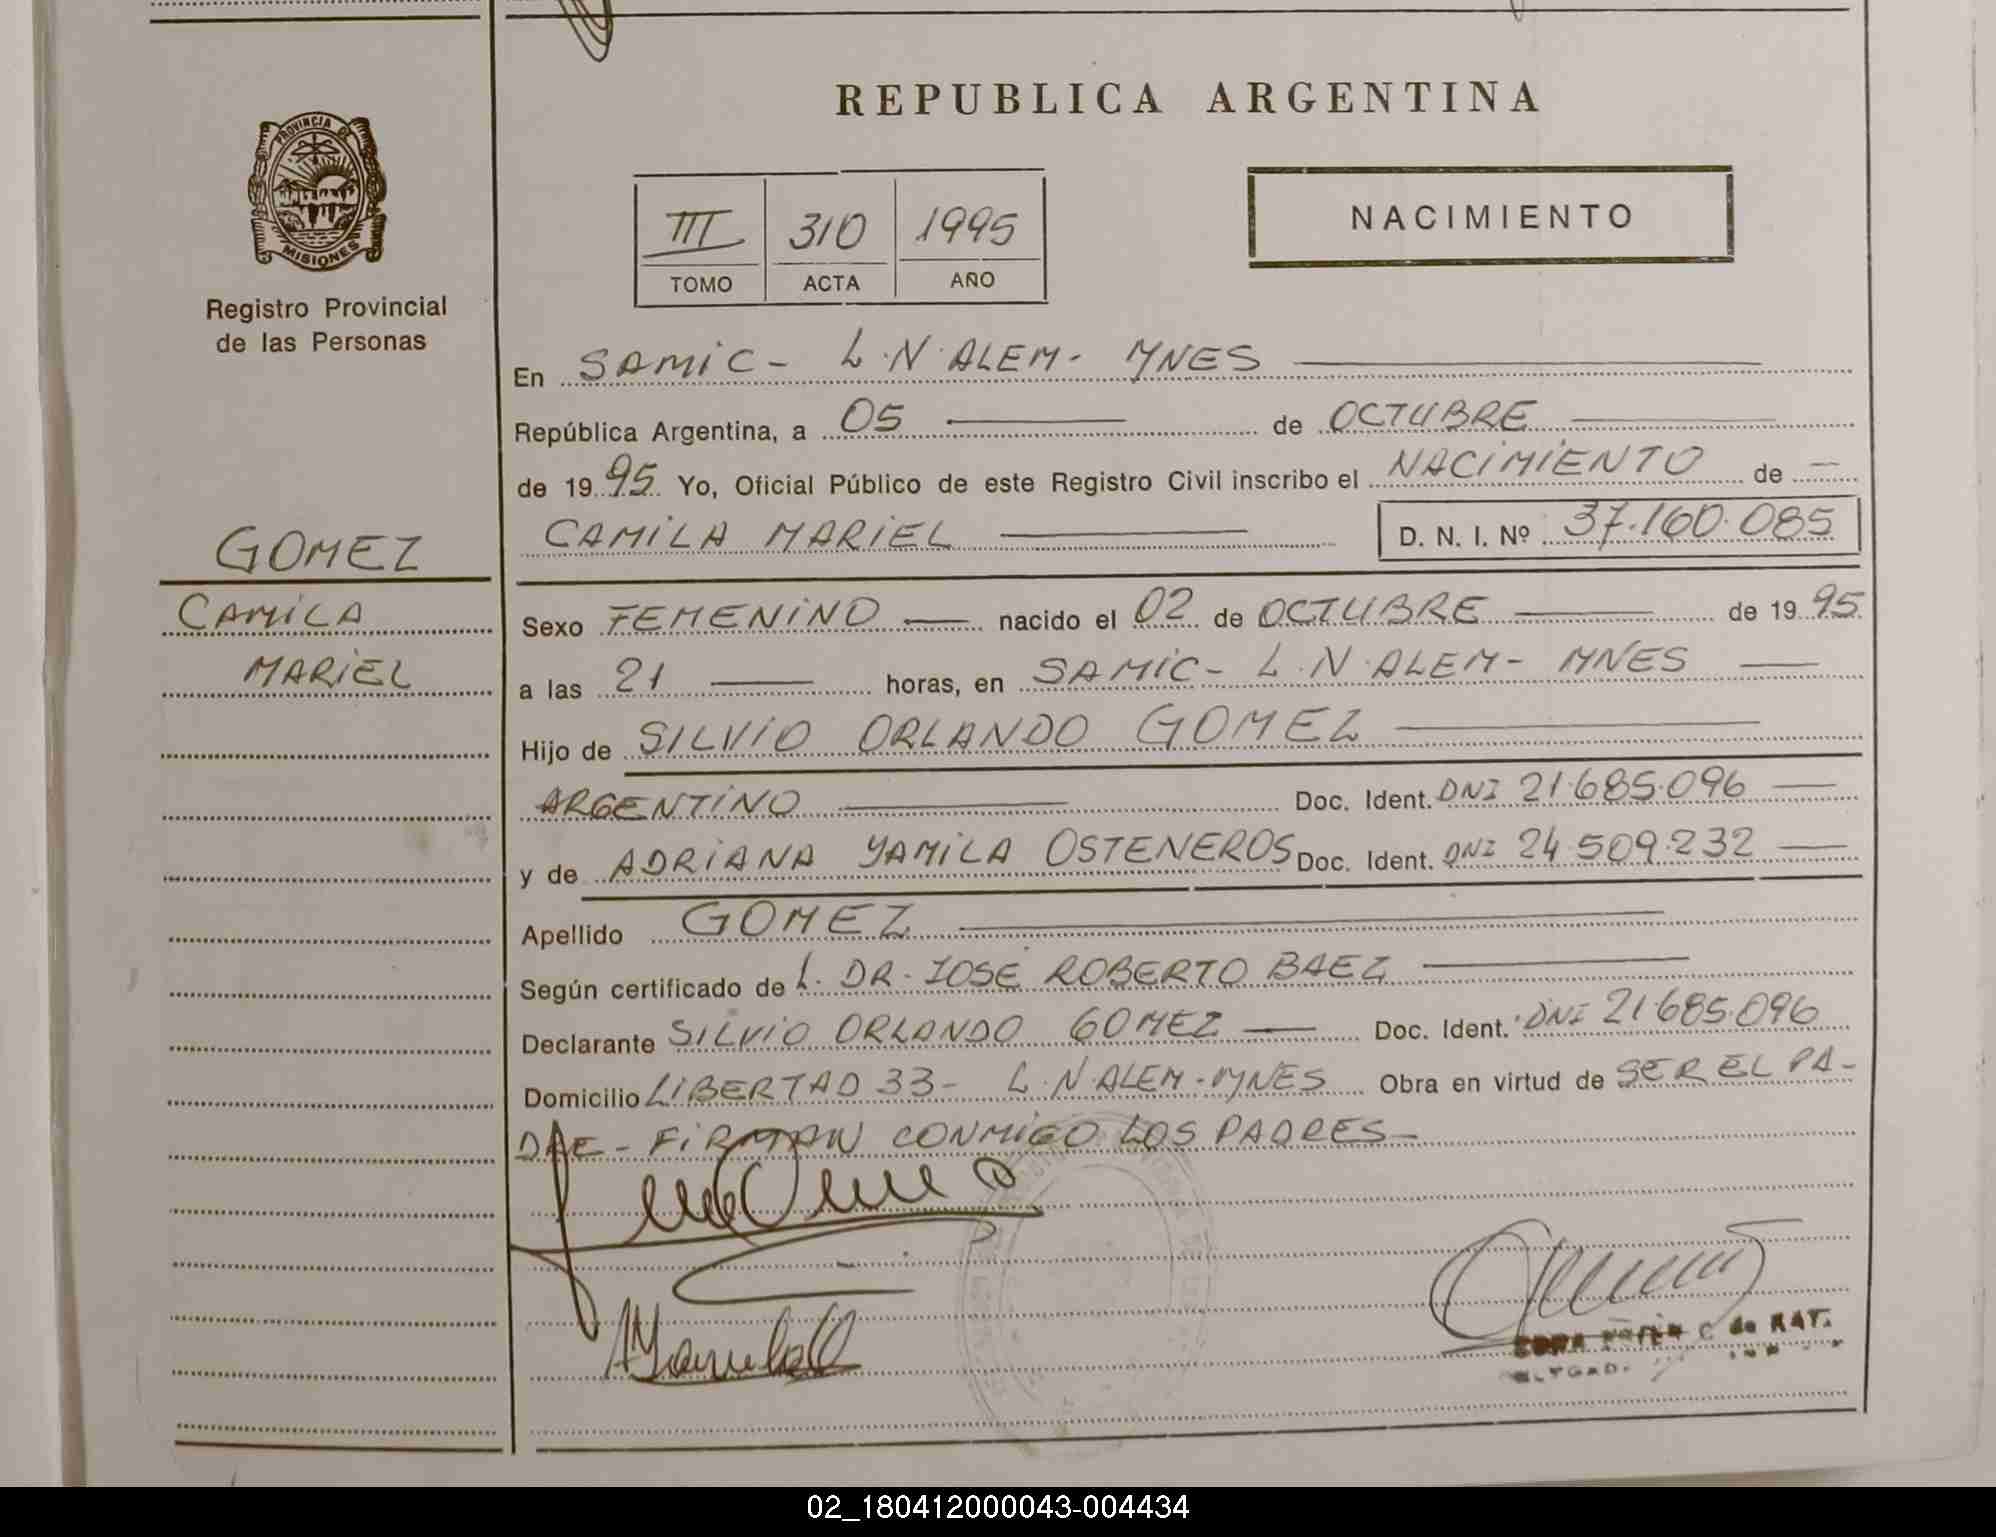 REPUBLICA ARGENTINA
PROVINCIA DE
MISIONES
Registro Provincial
de las Personas
III 310 1995
TOMO ACTA AÑO
NACIMIENTO
En SAMIC - L.N. ALEM - MNES
República Argentina, a 05 de OCTUBRE
de 1995 Yo, Oficial Público de este Registro Civil inscribo el NACIMIENTO de —
CAMILA MARIEL D. N. I. Nº 37.160.085
GOMEZ
CAMILA
MARIEL
Sexo FEMENINO nacido el 02 de OCTUBRE de 1995
a las 21 horas, en SAMIC - L.N. ALEM - MNES
Hijo de SILVIO ORLANDO GOMEZ
ARGENTINO Doc. Ident. DNI 21.685.096
y de ADRIANA YAMILA OSTENEROS Doc. Ident. DNI 24.509.232
Apellido GOMEZ
Según certificado de L. DR. JOSE ROBERTO BAEZ
Declarante SILVIO ORLANDO GOMEZ Doc. Ident. DNI 21.685.096
Domicilio LIBERTAD 33 - L.N. ALEM - MNES Obra en virtud de SER EL PA-
DRE - FIRMAN CONMIGO LOS PADRES -
C de RAT.
02_180412000043-004434